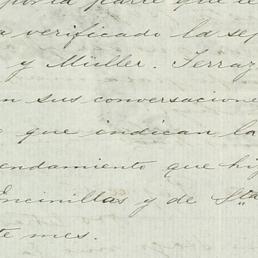 parte que le
a verificado la sep
y Müller. Terraz
n sus conversacione
que indican la
endamiento que hi
Encinillas y de Sta
te mes.